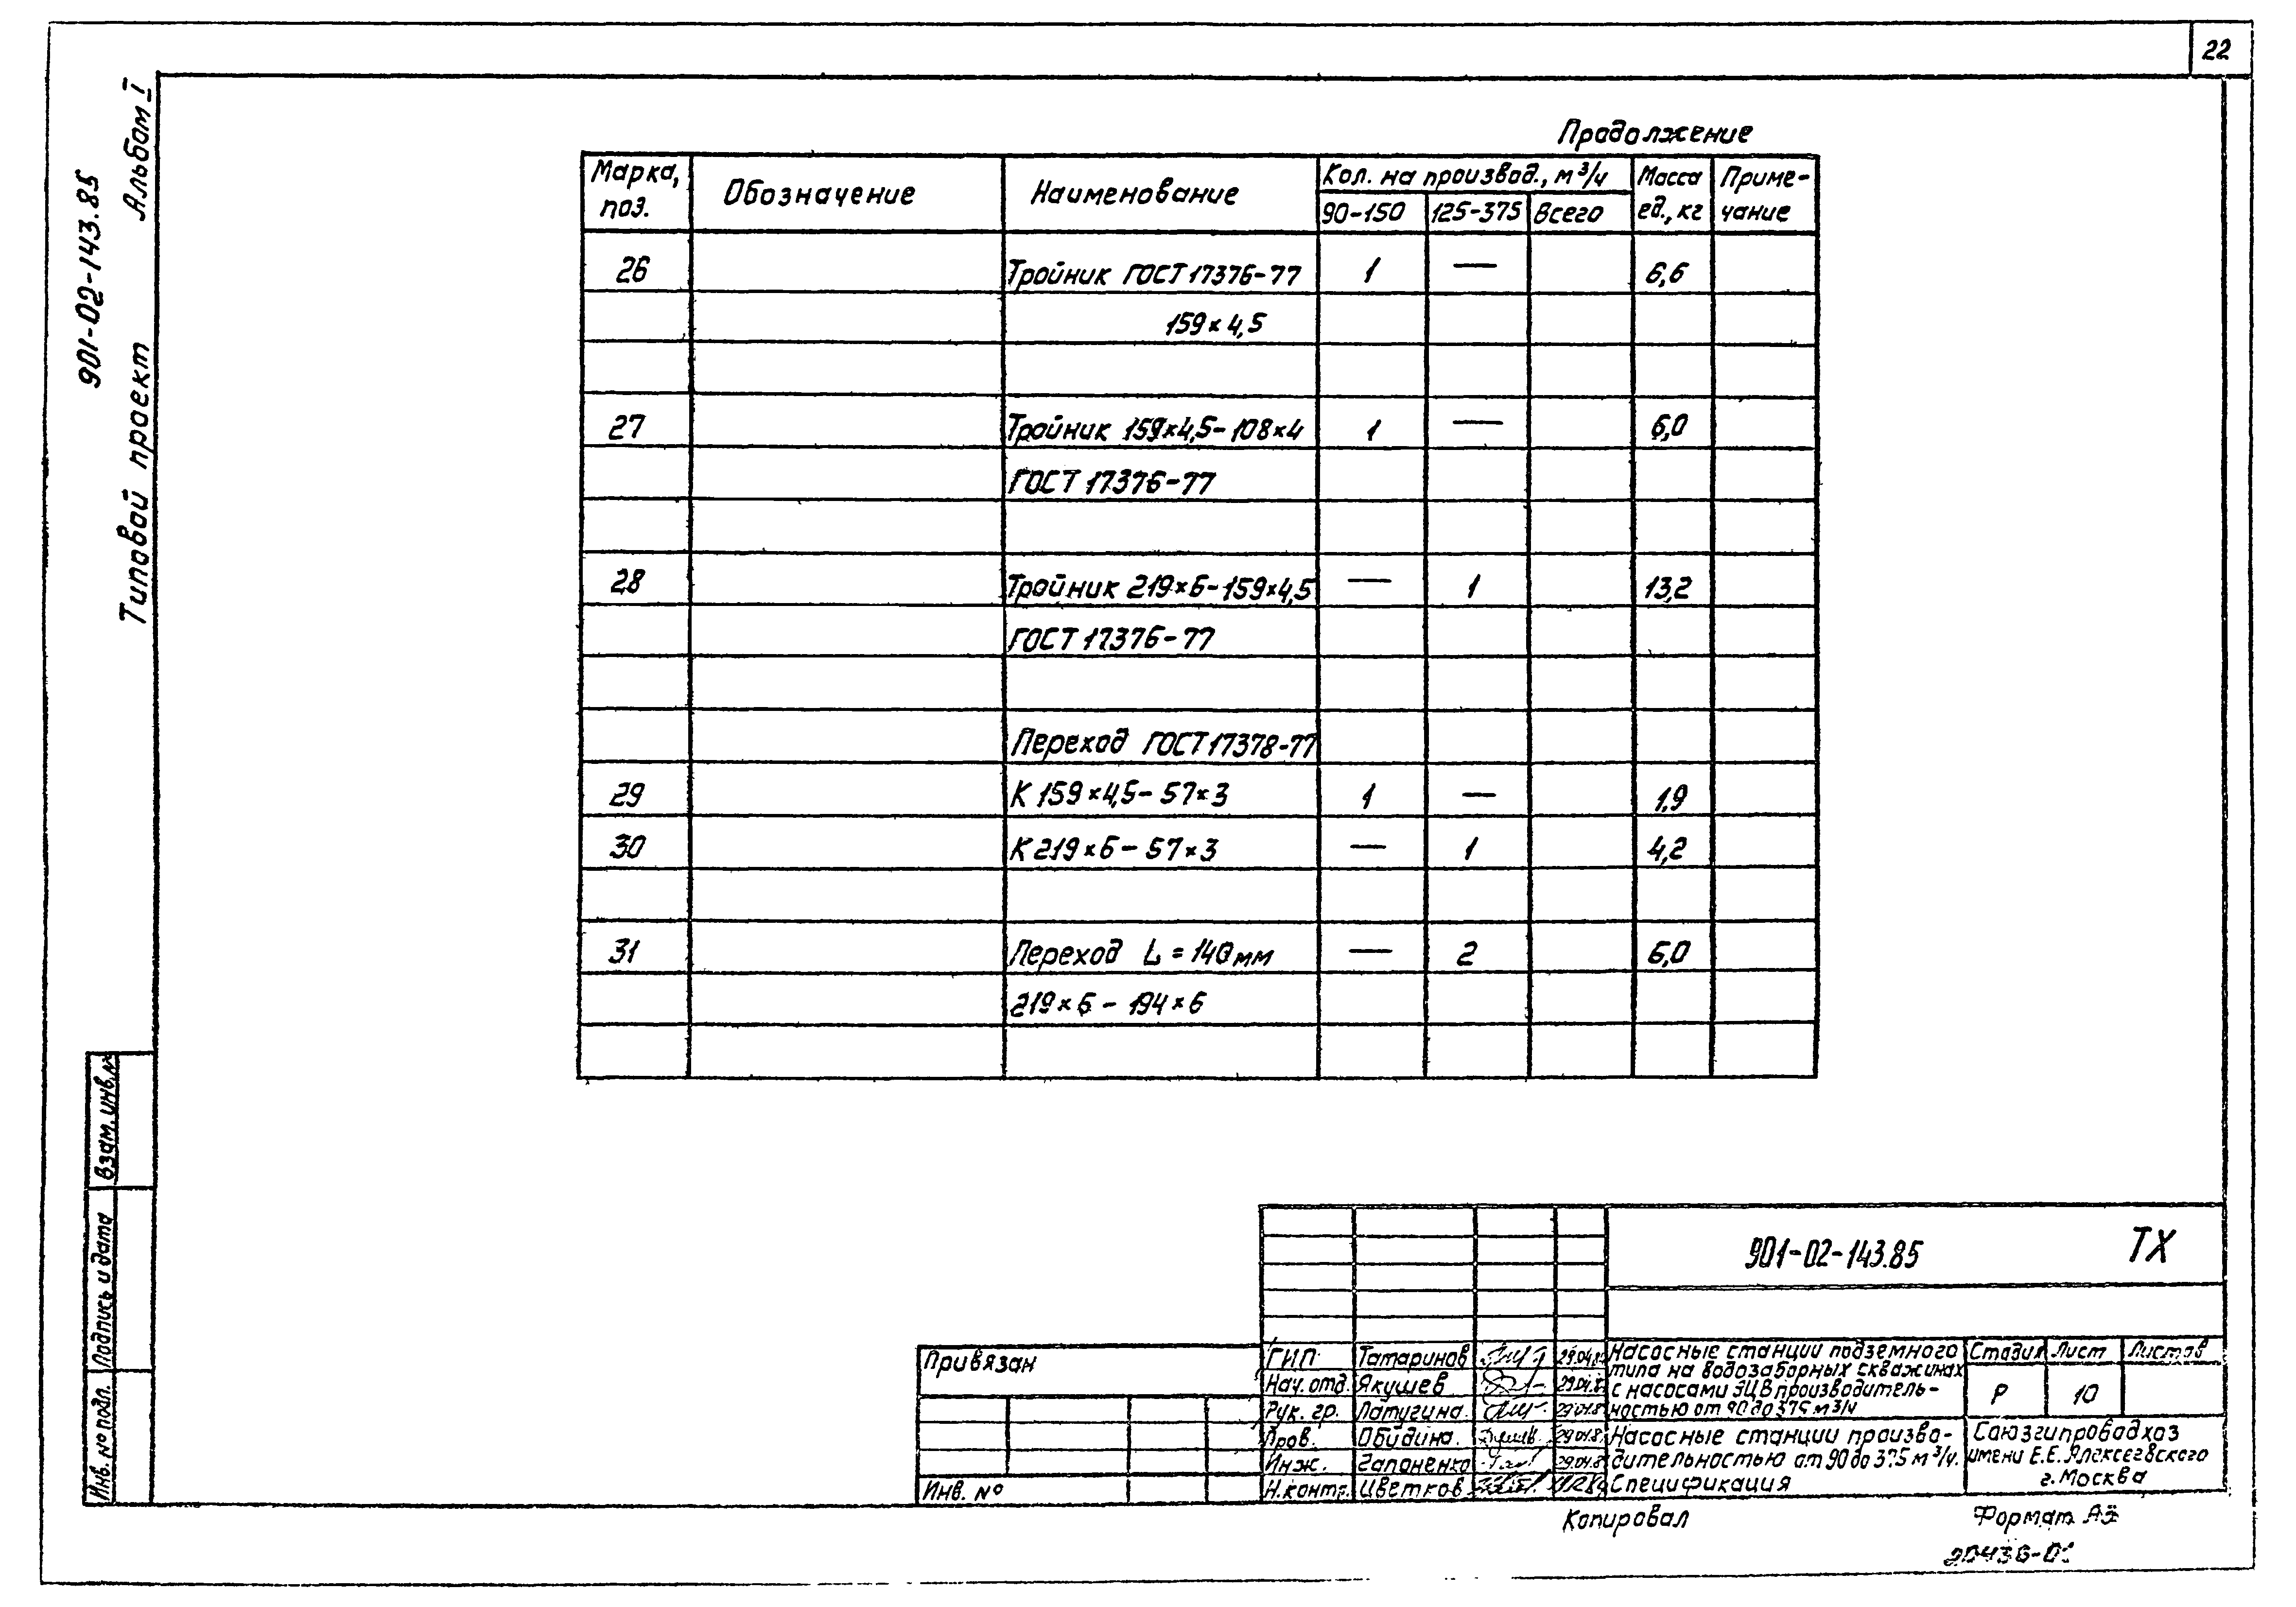 22
Типовой проект 901-02-143.85 Альбом I
Продолжение
Марка, поз. Обозначение Наименование Кол. на производ., м³/ч Масса ед., кг Приме-чание
90-150 125-375 Всего
26 Тройник ГОСТ 17376-77 1 — 6,6
159×4,5
27 Тройник 159×4,5-108×4 1 — 6,0
ГОСТ 17376-77
28 Тройник 219×6-159×4,5 — 1 13,2
ГОСТ 17376-77
Переход ГОСТ 17378-77
29 К 159×4,5-57×3 1 — 1,9
30 К 219×6-57×3 — 1 4,2
31 Переход L=140мм — 2 6,0
219×6-194×6
Взам. инв. №
Подпись и дата
Инв. № подл.
901-02-143.85 ТХ
Привязан
Инв. №
ГИП Татаринов
Нач. отд. Якушев
Рук. гр. Латугина
Пров. Обидина
Инж. Гапоненко
Н.контр. Цветков
Насосные станции подземного
типа на водозаборных скважинах
с насосами ЭЦВ производитель-
ностью от 90 до 375 м³/ч
Стадия Лист Листов
Р 10
Насосные станции произво-
дительностью от 90 до 375 м³/ч.
Спецификация
Союзгипроводхоз
имени Е.Е. Алексеевского
г. Москва
Копировал
Формат А3